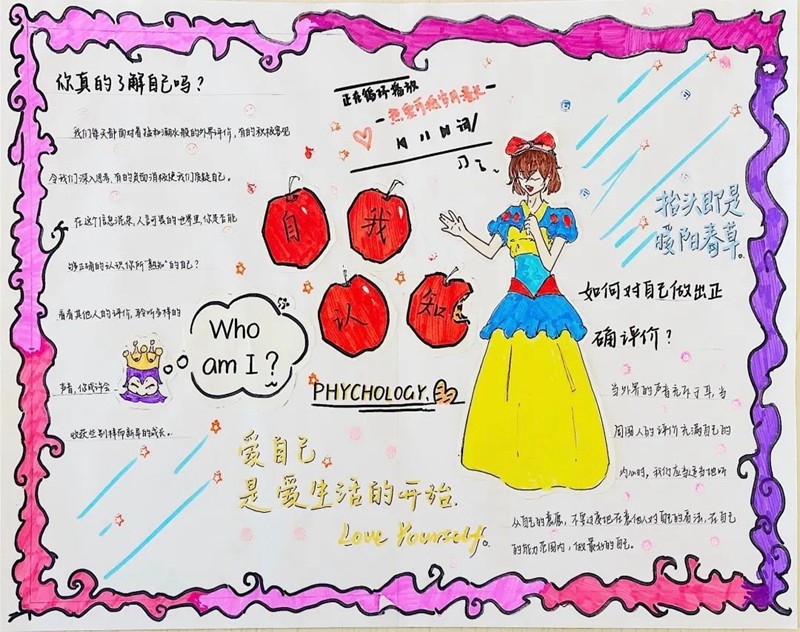 你真的了解自己吗？
我们每天都面对着猛如潮水般的外界评价，有的积极客观
令我们深入思考，有的负面消极使我们质疑自己。
在这个信息泥泉，人言可畏的世界里，你是否能
够正确的认识你所“熟知”的自己？
看看其他人的评价，聆听多样的
声音，你或许会
收获些别样而新年的成长。
正在循环播放
-热爱可抵岁月漫长-
词/
自我
认知
Who
am I？
PHYCHOLOGY.
爱自己
是爱生活的开始.
Love Yourself。
抬头即是
暖阳春草。
如何对自己做出正
确评价？
当外界的声音充斥于耳，当
周围人的评价充满自己的
内心时，我们应当适当地听
从自己的意愿，不要过度地在意他人对自己的看法，在自己
的能力范围内，做最好的自己。